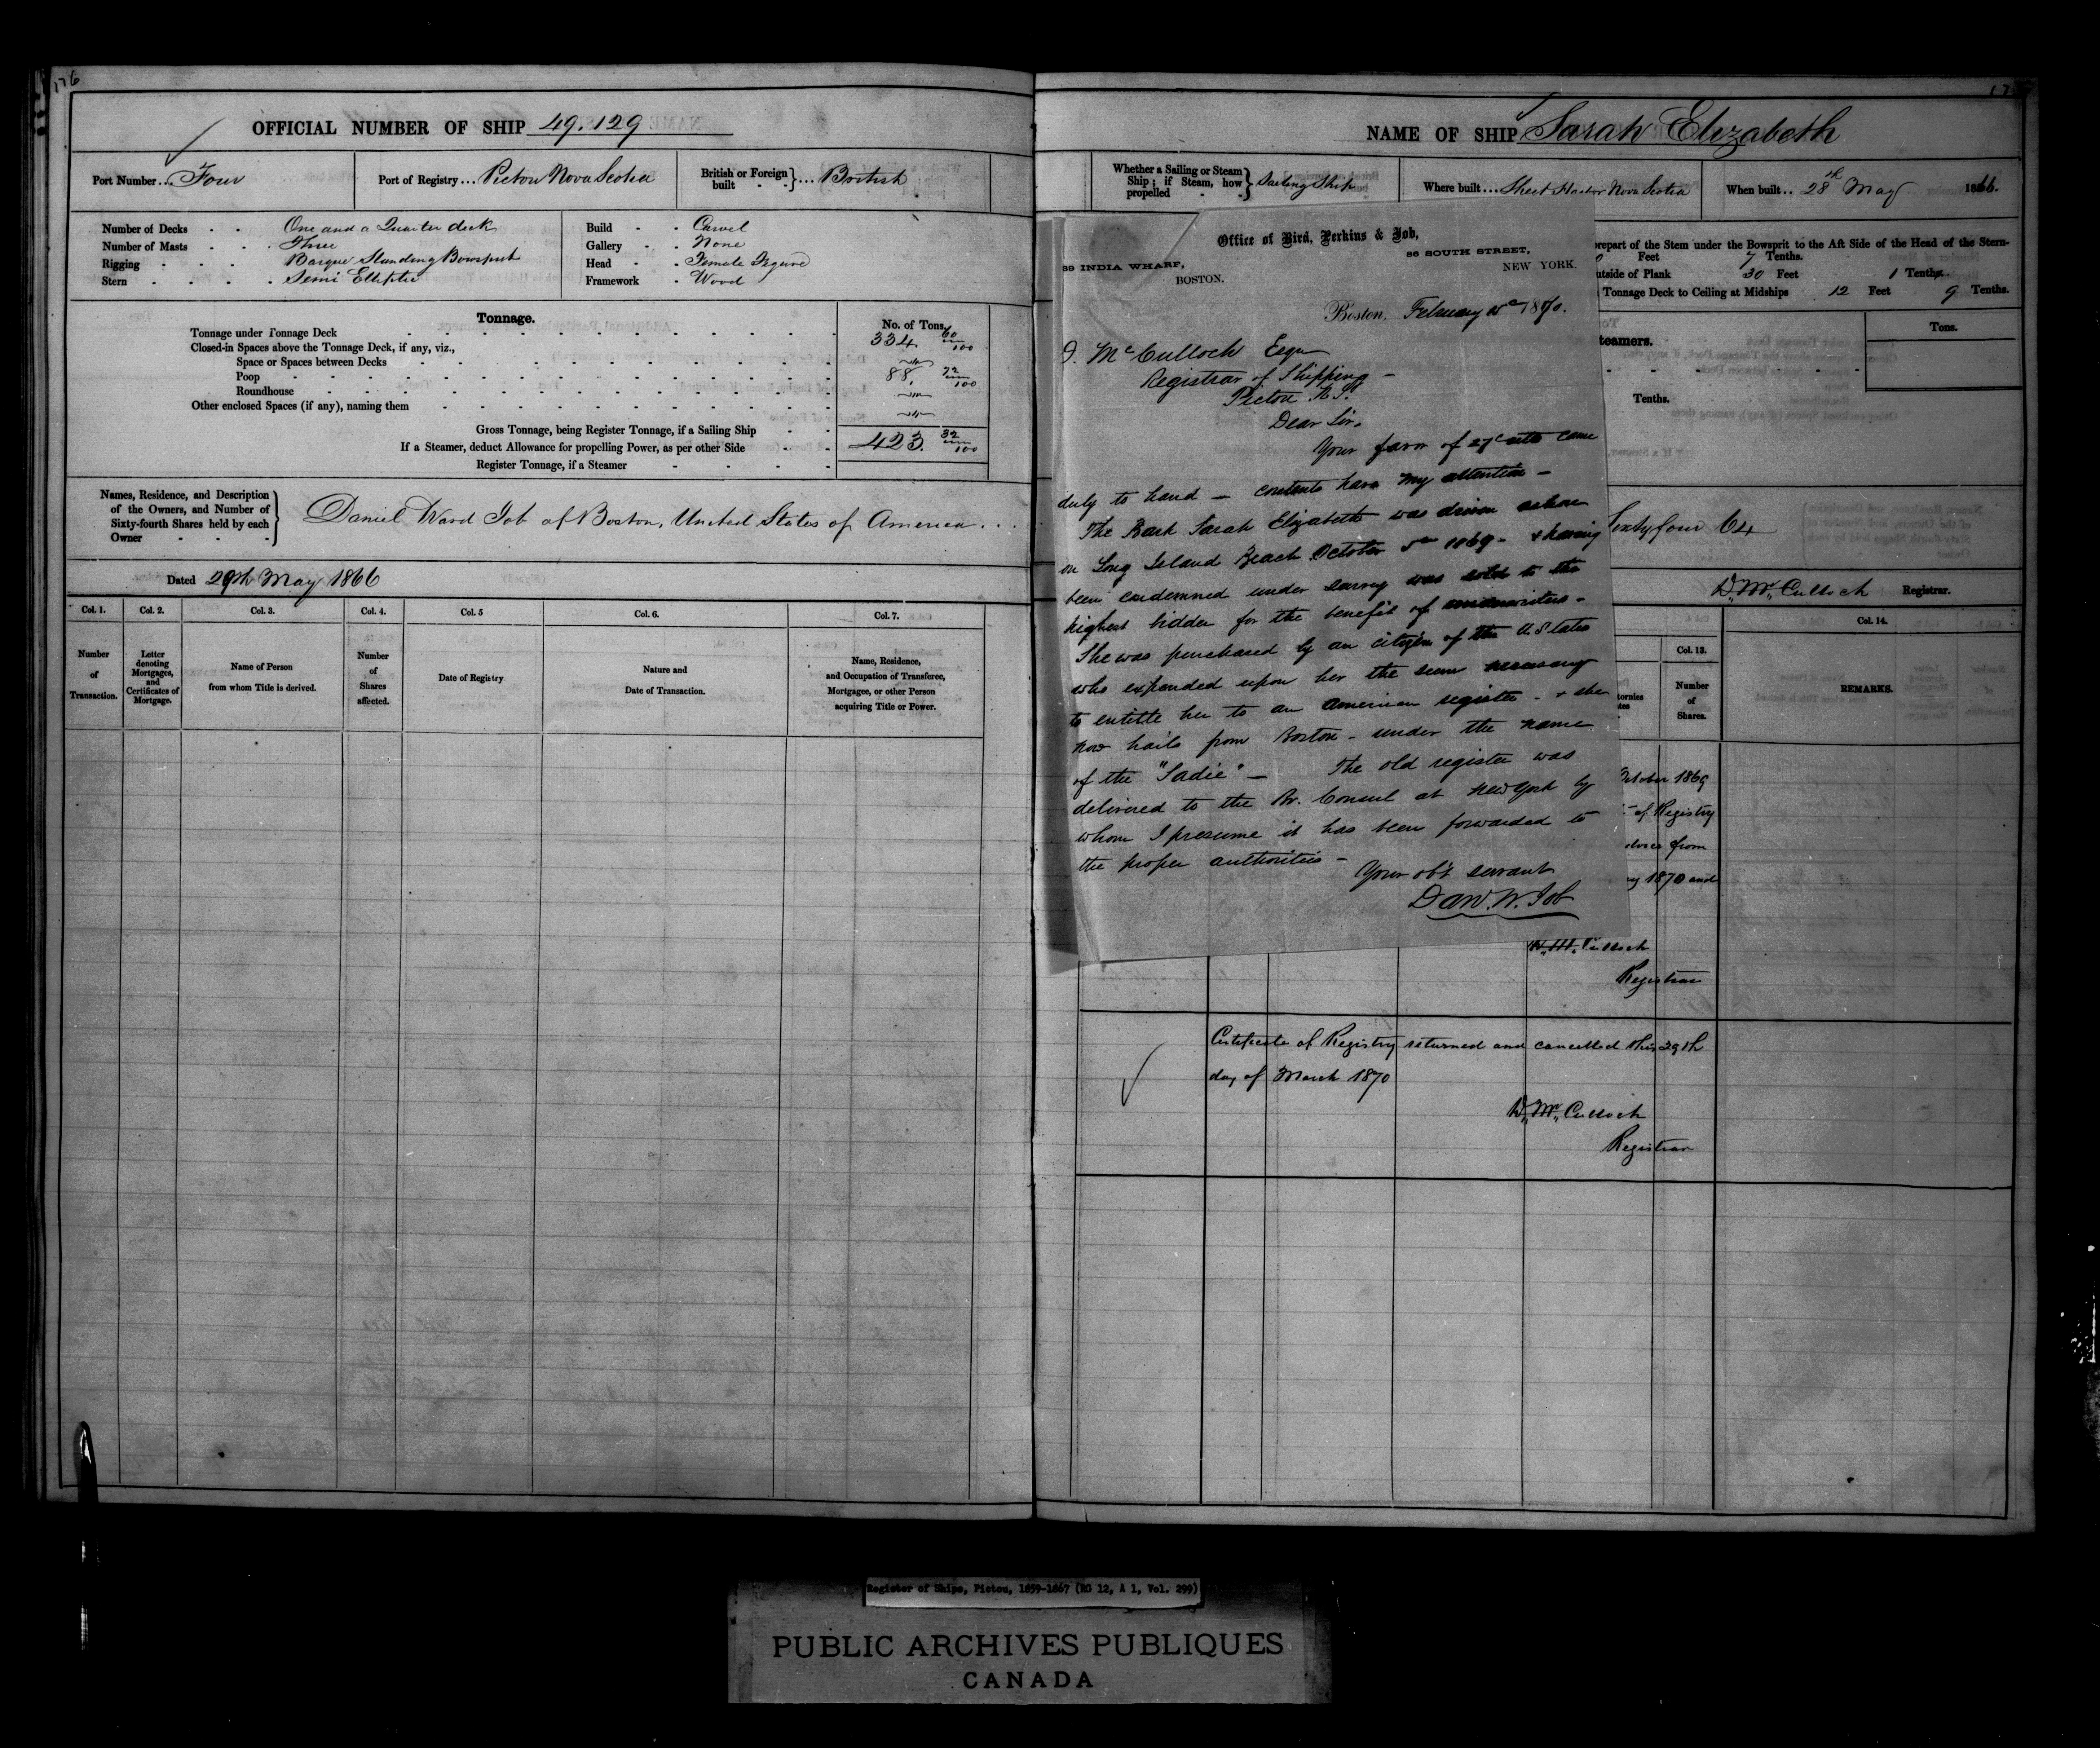 176
OFFICIAL NUMBER OF SHIP 49.129
Port Number... Four
Port of Registry... Pictou Nova Scotia
British or Foreign built - - }... British
Number of Decks - - One and a Quarter deck
Number of Masts - - - Three
Rigging - - - Barque Standing Bowsprit
Stern - - - - Semi Elliptic
Build - - Carvel
Gallery - - None
Head - - Female Figure
Framework - Wood
Tonnage.
No. of Tons.
Tonnage under Tonnage Deck 334 60/100
Closed-in Spaces above the Tonnage Deck, if any, viz.,
Space or Spaces between Decks
Poop 88. 72/100
Roundhouse
Other enclosed Spaces (if any), naming them
Gross Tonnage, being Register Tonnage, if a Sailing Ship 423 32/100
If a Steamer, deduct Allowance for propelling Power, as per other Side
Register Tonnage, if a Steamer
Names, Residence, and Description of the Owners, and Number of Sixty-fourth Shares held by each Owner - - - }
Daniel Ward Job of Boston, United States of America...
Dated 29th May 1866
Col. 1. Col. 2. Col. 3. Col. 4. Col. 5 Col. 6. Col. 7.
Number of Transaction.
Letter denoting Mortgages, and Certificates of Mortgage.
Name of Person from whom Title is derived.
Number of Shares affected.
Date of Registry
Nature and Date of Transaction.
Name, Residence, and Occupation of Transferee, Mortgagee, or other Person acquiring Title or Power.
NAME OF SHIP Sarah Elizabeth
Whether a Sailing or Steam Ship; if Steam, how propelled - - } Sailing Ship
Where built... Sheet Harbor Nova Scotia
When built.. 28th May 1866.
repart of the Stem under the Bowsprit to the Aft Side of the Head of the Stern-
0 Feet 7 Tenths.
utside of Plank 30 Feet 1 Tenths.
Tonnage Deck to Ceiling at Midships 12 Feet 9 Tenths.
teamers.
Tons.
Tenths.
Sixty four 64
D. Mc. Culloch Registrar.
Col. 13. Col. 14.
Number of Shares.
REMARKS.
Office of Bird, Perkins & Job,
89 INDIA WHARF,
BOSTON.
86 SOUTH STREET,
NEW YORK.
Boston, February 1870.
D. McCulloch Esqr
Registrar of Shipping -
Pictou N.S.
Dear Sir.
Your favor of 27 ulto came
duly to hand - contents have my attention -
The Bark Sarah Elizabeth was driven ashore
on Long Island Beach October 5th 1869 - & having
been condemned under survey was sold to the
highest bidder for the benefit of underwriters -
She was purchased by an citizen of the U.States
who expended upon her the sum necessary
to entitle her to an American register - & she
now hails from Boston - under the name
of the "Sadie" - The old register was
delivered to the Br. Consul at New York by
whom I presume it has been forwarded to
the proper authorities -
Your obt servant
Danl. W. Job
October 1869
of Registry
from
1870 and
D. Mc. Culloch
Registrar
Certificate of Registry returned and cancelled this 29th
day of March 1870
D. Mc. Culloch
Registrar
Register of Ships, Pictou, 1859-1867 (RG 12, A 1, Vol. 299)
PUBLIC ARCHIVES PUBLIQUES
CANADA